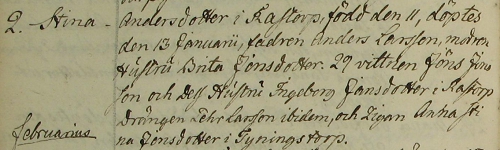 2. Stina - Andersdotter i Kastorp, född den 11, döptes
den 13 Januarii, fadren Anders Larsson, modren
Hustru Brita Jonsdotter. 29 vittnen Jöns Jöns
son och Dess Hustru Ingeborg Jansdotter i Kastorp
Drängen Lehr Larsson ibidem, och Pigan Anna Sti
Februarius na Jonsdotter i Gyningstorp.